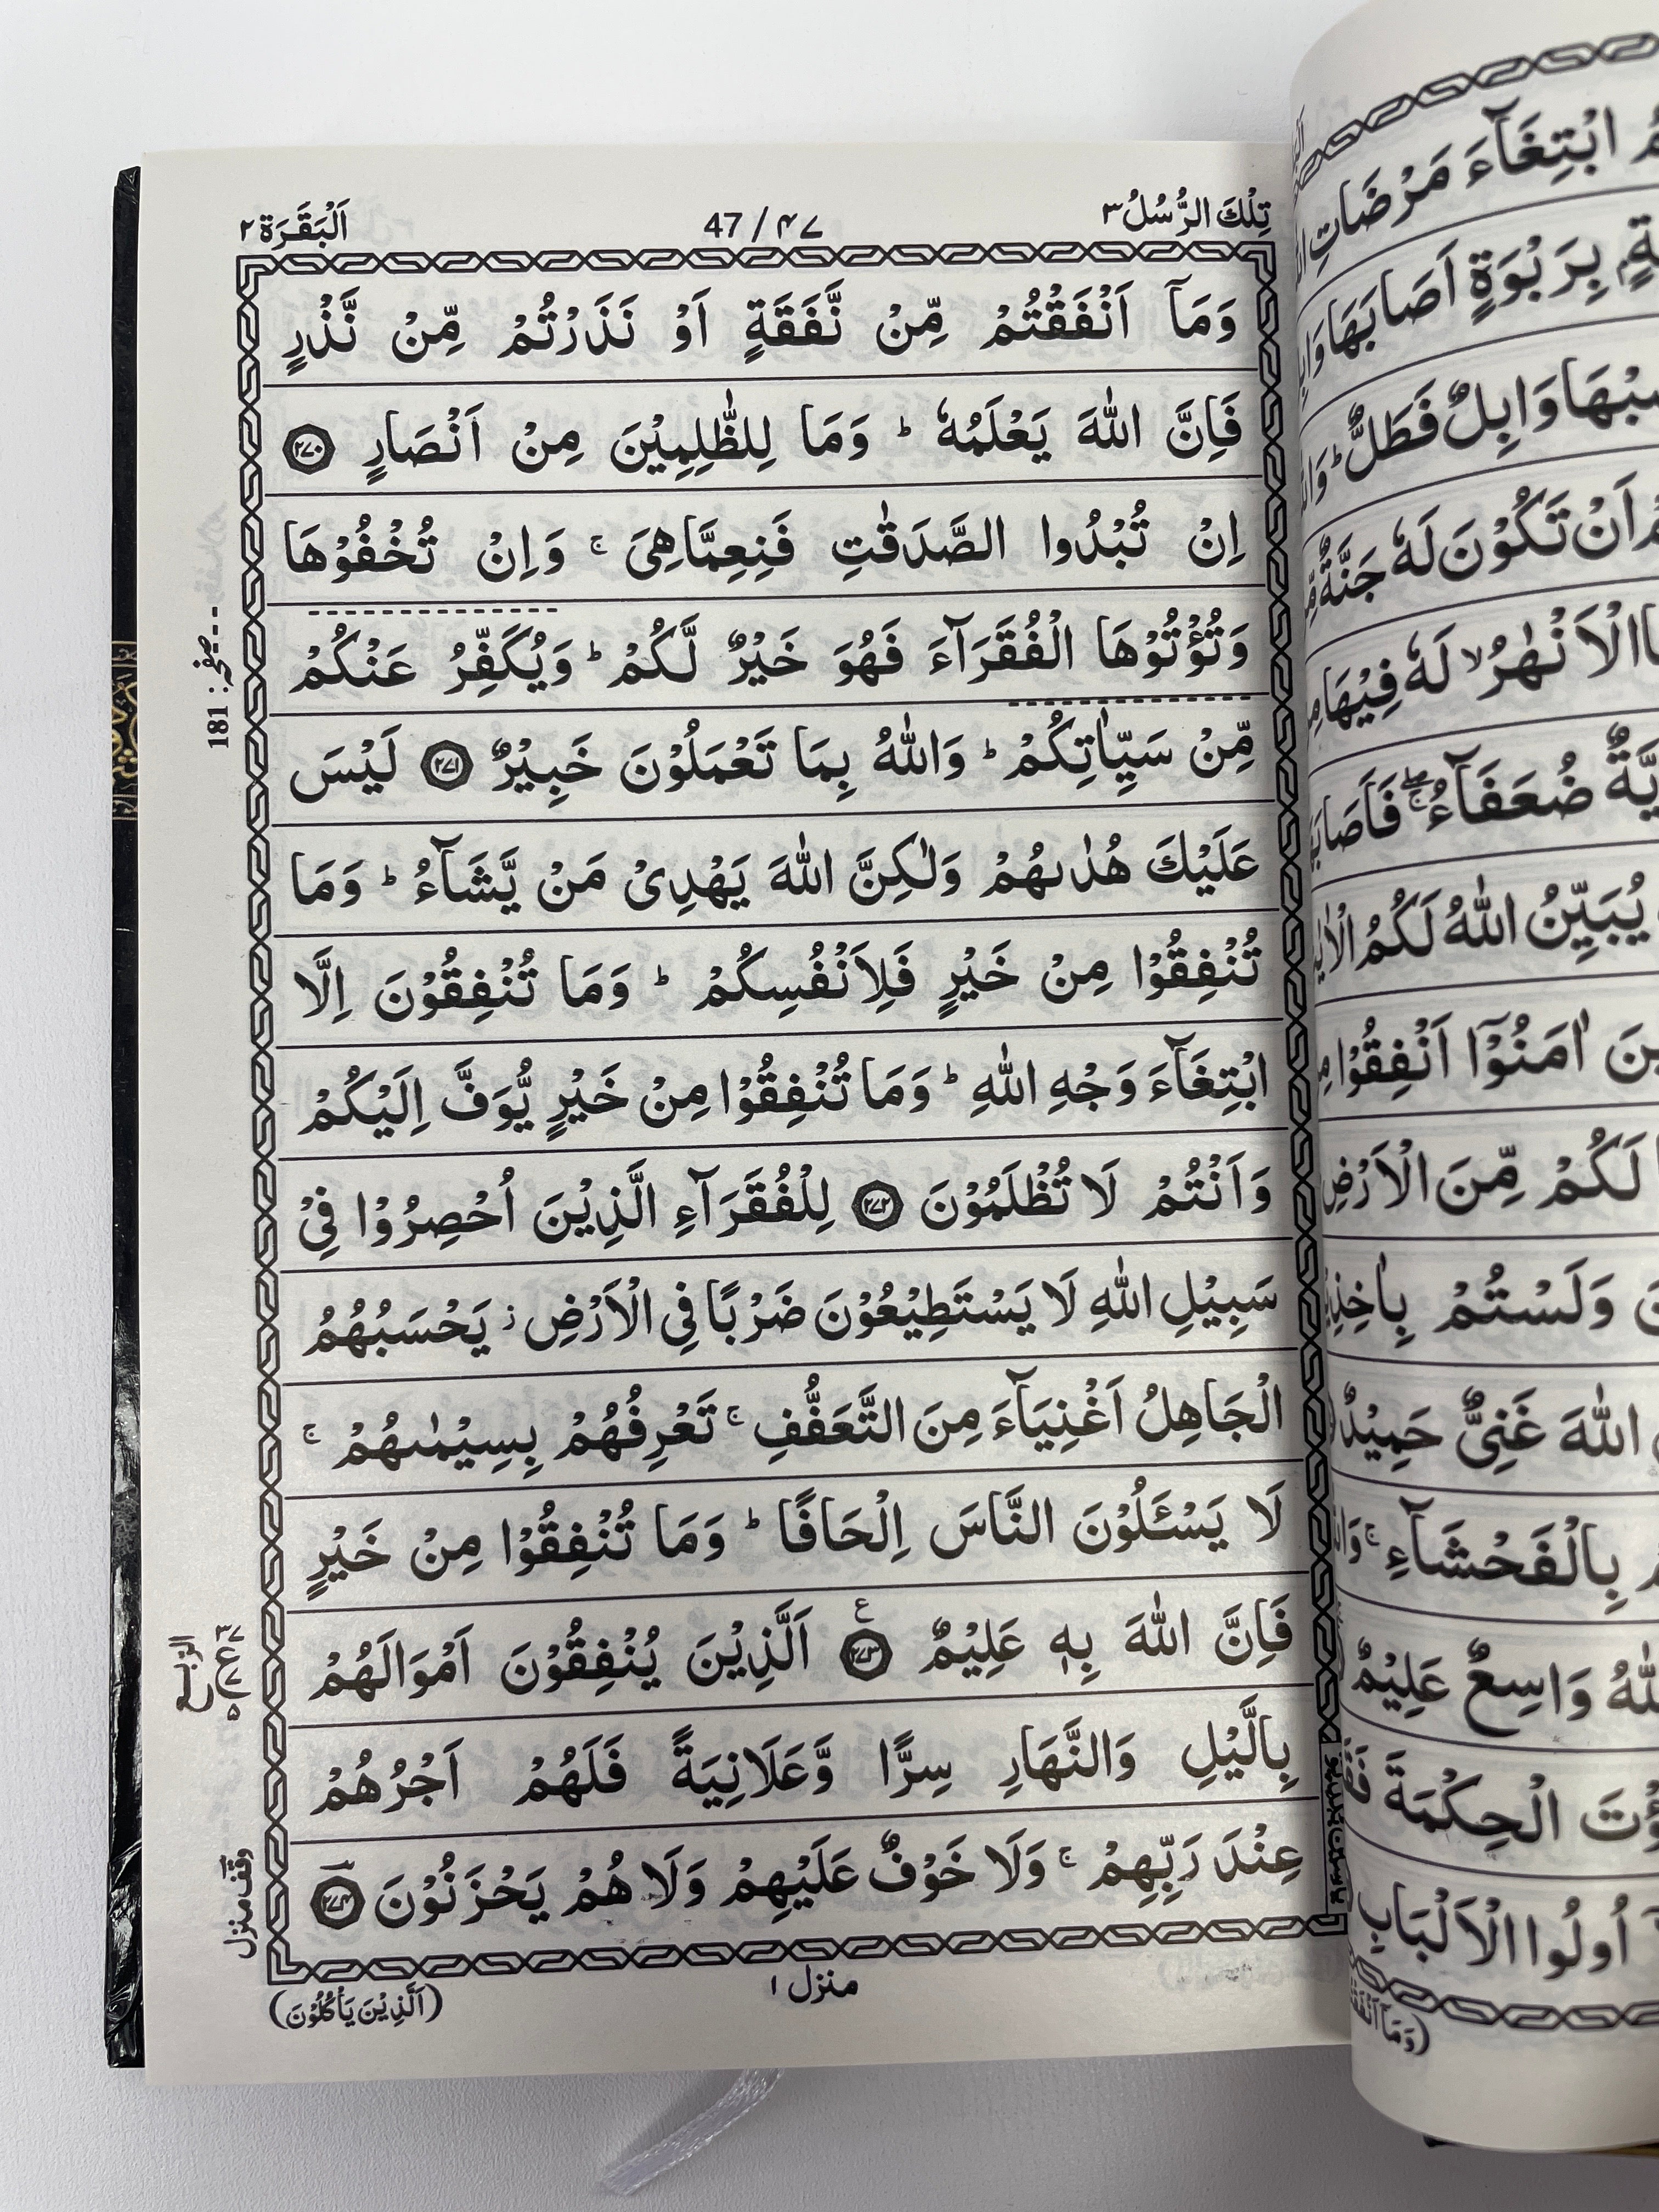 تِلْكَ الرُّسُلُ ٣
47 / ٤٧
اَلْبَقَرَة ٢
وَمَآ اَنْفَقْتُمْ مِّنْ نَّفَقَةٍ اَوْ نَذَرْتُمْ مِّنْ نَّذْرٍ
فَاِنَّ اللّٰهَ يَعْلَمُهٗ ؕ وَمَا لِلظّٰلِمِيْنَ مِنْ اَنْصَارٍ ٢٧٠
اِنْ تُبْدُوا الصَّدَقٰتِ فَنِعِمَّاهِیَ ۚ وَاِنْ تُخْفُوْهَا
وَتُؤْتُوْهَا الْفُقَرَآءَ فَهُوَ خَيْرٌ لَّكُمْ ؕ وَيُكَفِّرُ عَنْكُمْ
مِّنْ سَيِّاٰتِكُمْ ؕ وَاللّٰهُ بِمَا تَعْمَلُوْنَ خَبِيْرٌ ٢٧١ لَيْسَ
عَلَيْكَ هُدٰىهُمْ وَلٰكِنَّ اللّٰهَ يَهْدِیْ مَنْ يَّشَآءُ ؕ وَمَا
تُنْفِقُوْا مِنْ خَيْرٍ فَلِاَنْفُسِكُمْ ؕ وَمَا تُنْفِقُوْنَ اِلَّا
ابْتِغَآءَ وَجْهِ اللّٰهِ ؕ وَمَا تُنْفِقُوْا مِنْ خَيْرٍ يُّوَفَّ اِلَيْكُمْ
وَاَنْتُمْ لَا تُظْلَمُوْنَ ٢٧٢ لِلْفُقَرَآءِ الَّذِيْنَ اُحْصِرُوْا فِیْ
سَبِيْلِ اللّٰهِ لَا يَسْتَطِيْعُوْنَ ضَرْبًا فِی الْاَرْضِ ؗ يَحْسَبُهُمُ
الْجَاهِلُ اَغْنِيَآءَ مِنَ التَّعَفُّفِ ۚ تَعْرِفُهُمْ بِسِيْمٰىهُمْ ۚ
لَا يَسْئَلُوْنَ النَّاسَ اِلْحَافًا ؕ وَمَا تُنْفِقُوْا مِنْ خَيْرٍ
فَاِنَّ اللّٰهَ بِهٖ عَلِيْمٌ ٢٧٣ ع اَلَّذِيْنَ يُنْفِقُوْنَ اَمْوَالَهُمْ
بِالَّيْلِ وَالنَّهَارِ سِرًّا وَّعَلَانِيَةً فَلَهُمْ اَجْرُهُمْ
عِنْدَ رَبِّهِمْ ۚ وَلَا خَوْفٌ عَلَيْهِمْ وَلَا هُمْ يَحْزَنُوْنَ ٢٧٤
منزل ١
(اَلَّذِيْنَ يَاْكُلُوْنَ)
صفحہ: 181
الرّبع
وقف منزل
ابْتِغَآءَ مَرْضَاتِ
بِرَبْوَةٍ اَصَابَهَا
وَابِلٌ فَطَلٌّ ؕ
اَنْ تَكُوْنَ لَهٗ جَنَّةٌ
الْاَنْهٰرُ ۙ لَهٗ فِيْهَا
ضُعَفَآءُ
يُبَيِّنُ اللّٰهُ لَكُمُ
اٰمَنُوْٓا اَنْفِقُوْا
لَكُمْ مِّنَ الْاَرْضِ
وَلَسْتُمْ
اللّٰهَ غَنِیٌّ حَمِيْدٌ
بِالْفَحْشَآءِ ۚ
وَاسِعٌ عَلِيْمٌ
الْحِكْمَةَ
اُولُوا الْاَلْبَابِ